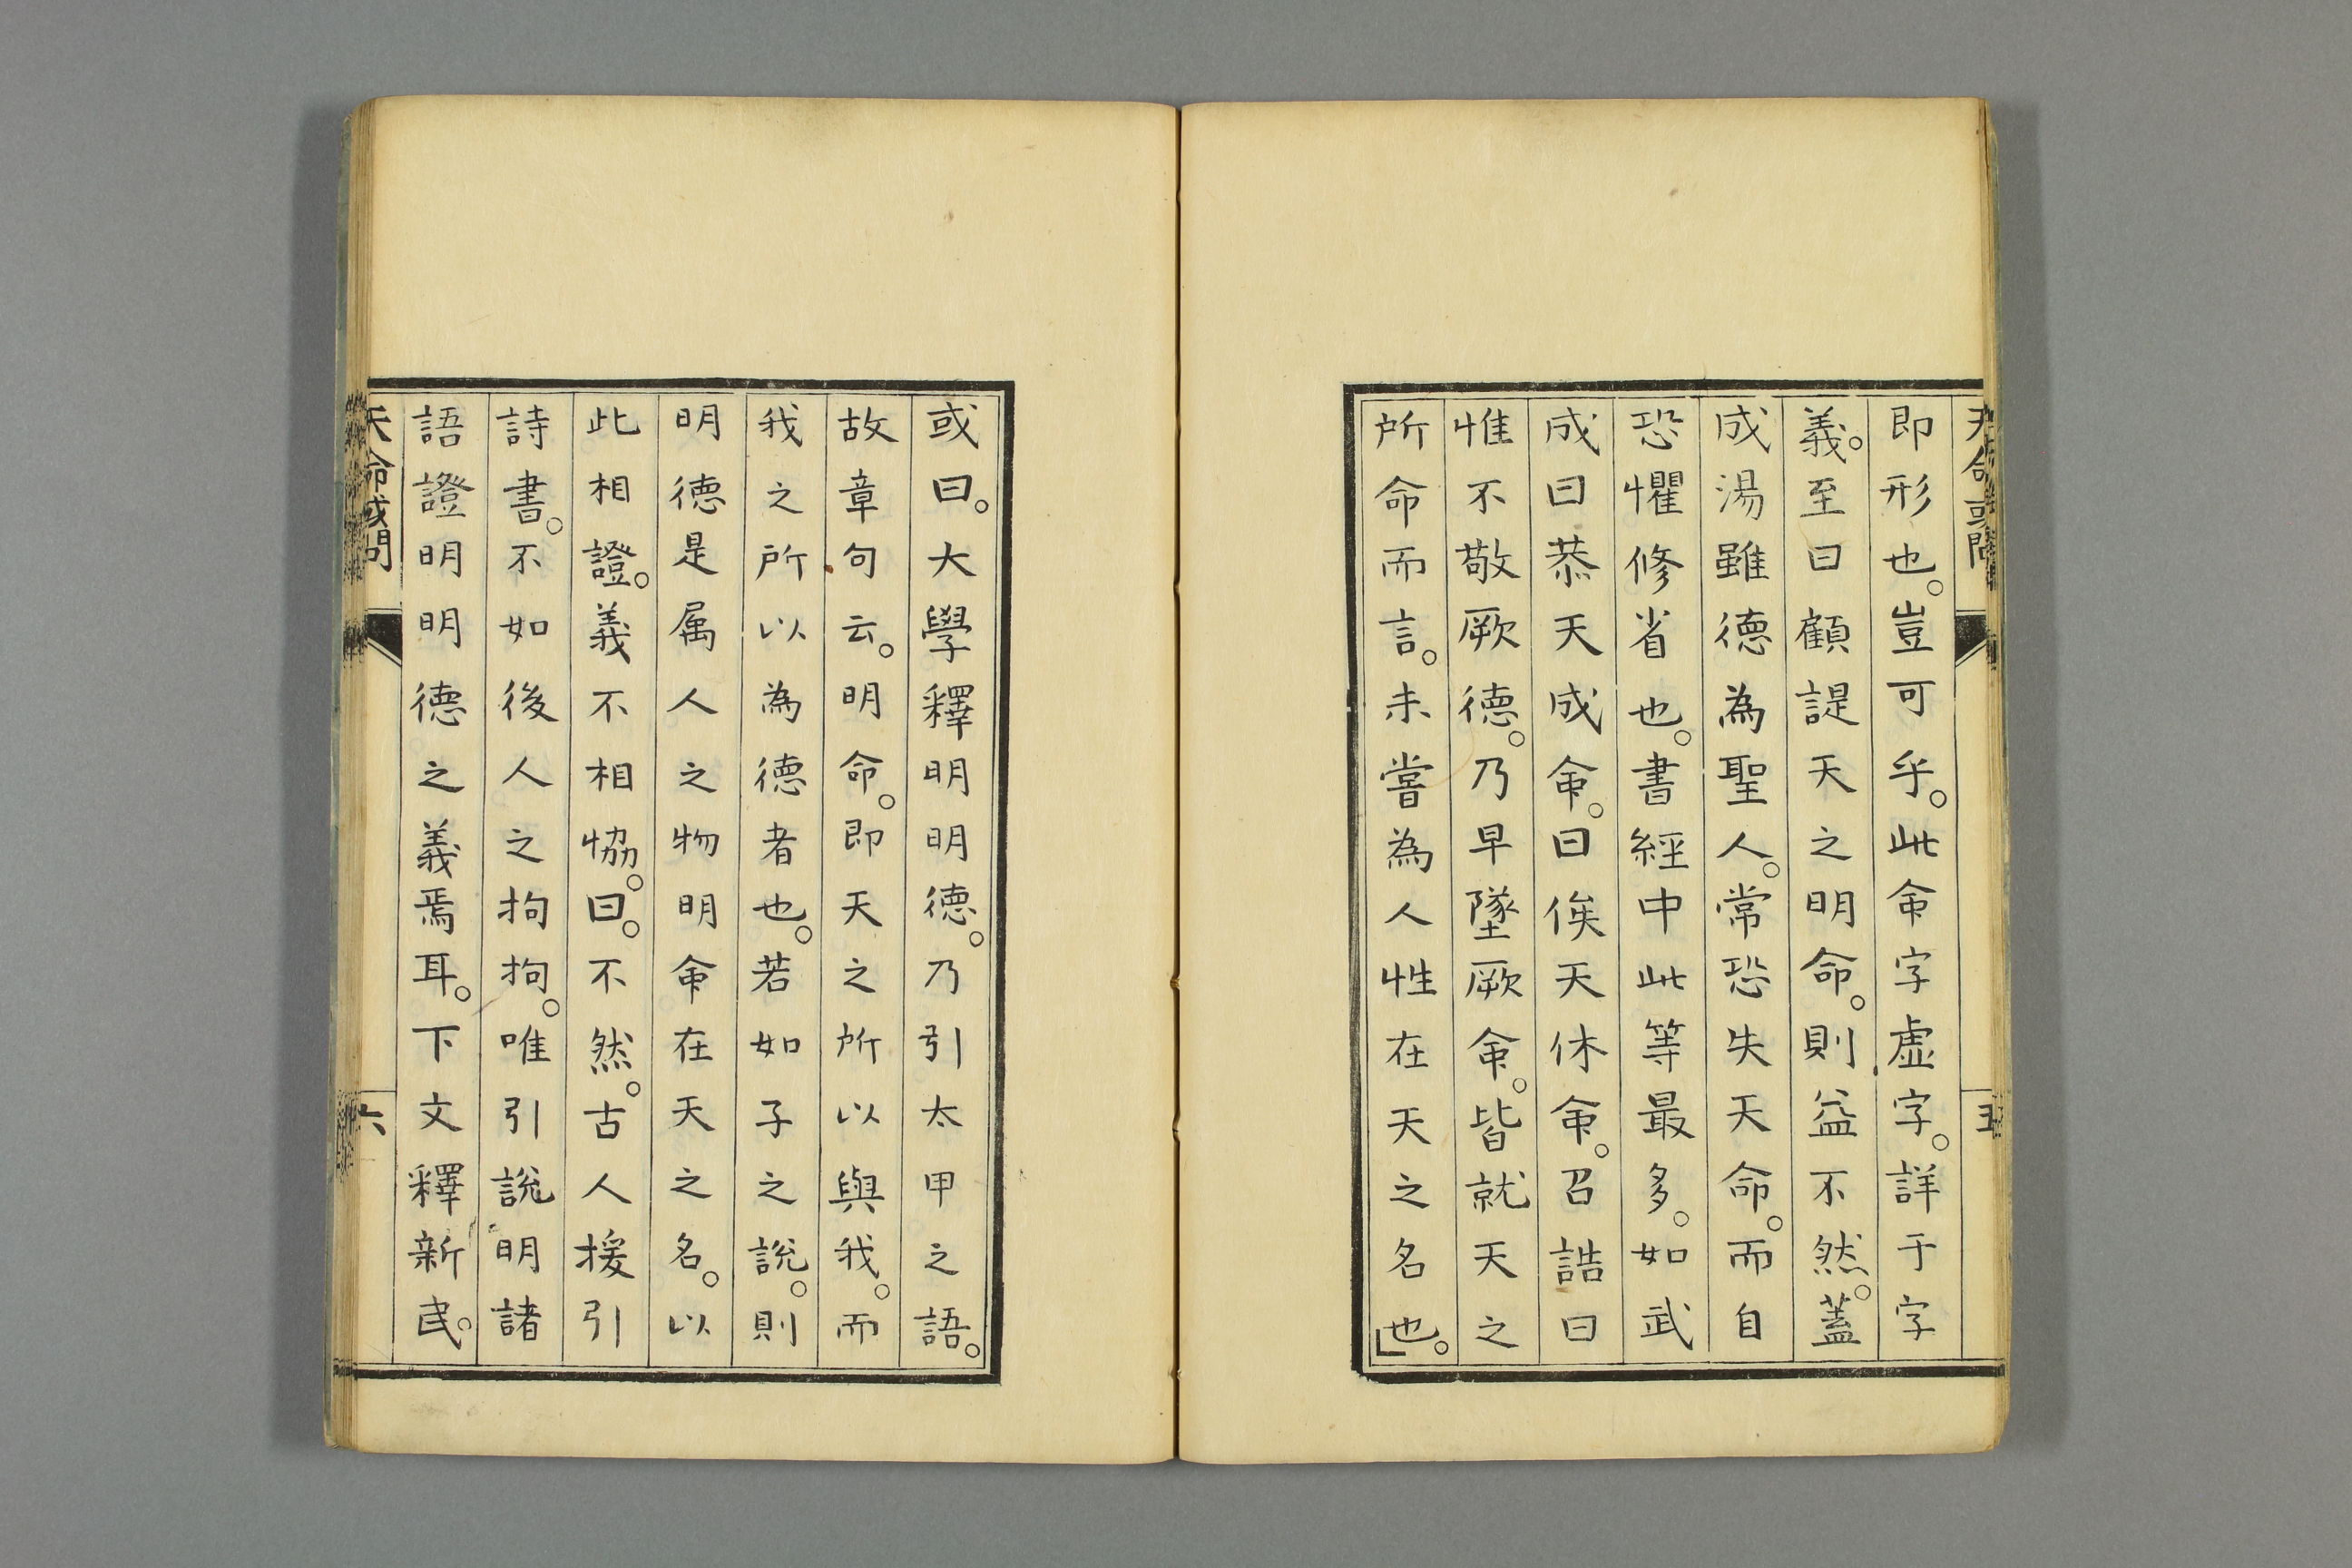 天命或問
五
即形也。豈可乎。此命字虛字。詳于字
義。至曰顧諟天之明命。則益不然。蓋
成湯雖德為聖人。常恐失天命。而自
恐懼修省也。書經中此等最多。如武
成曰恭天成命。曰俟天休命。召誥曰
惟不敬厥德。乃早墜厥命。皆就天之
所命而言。未嘗為人性在天之名也。」
或曰。大學釋明明德。乃引太甲之語。
故章句云。明命。即天之所以與我。而
我之所以為德者也。若如子之說。則
明德是属人之物明命在天之名。以
此相證。義不相恊。曰。不然。古人援引
詩書。不如後人之拘拘。唯引說明諸
語證明明德之義焉耳。下文釋新民。
天命或問
六